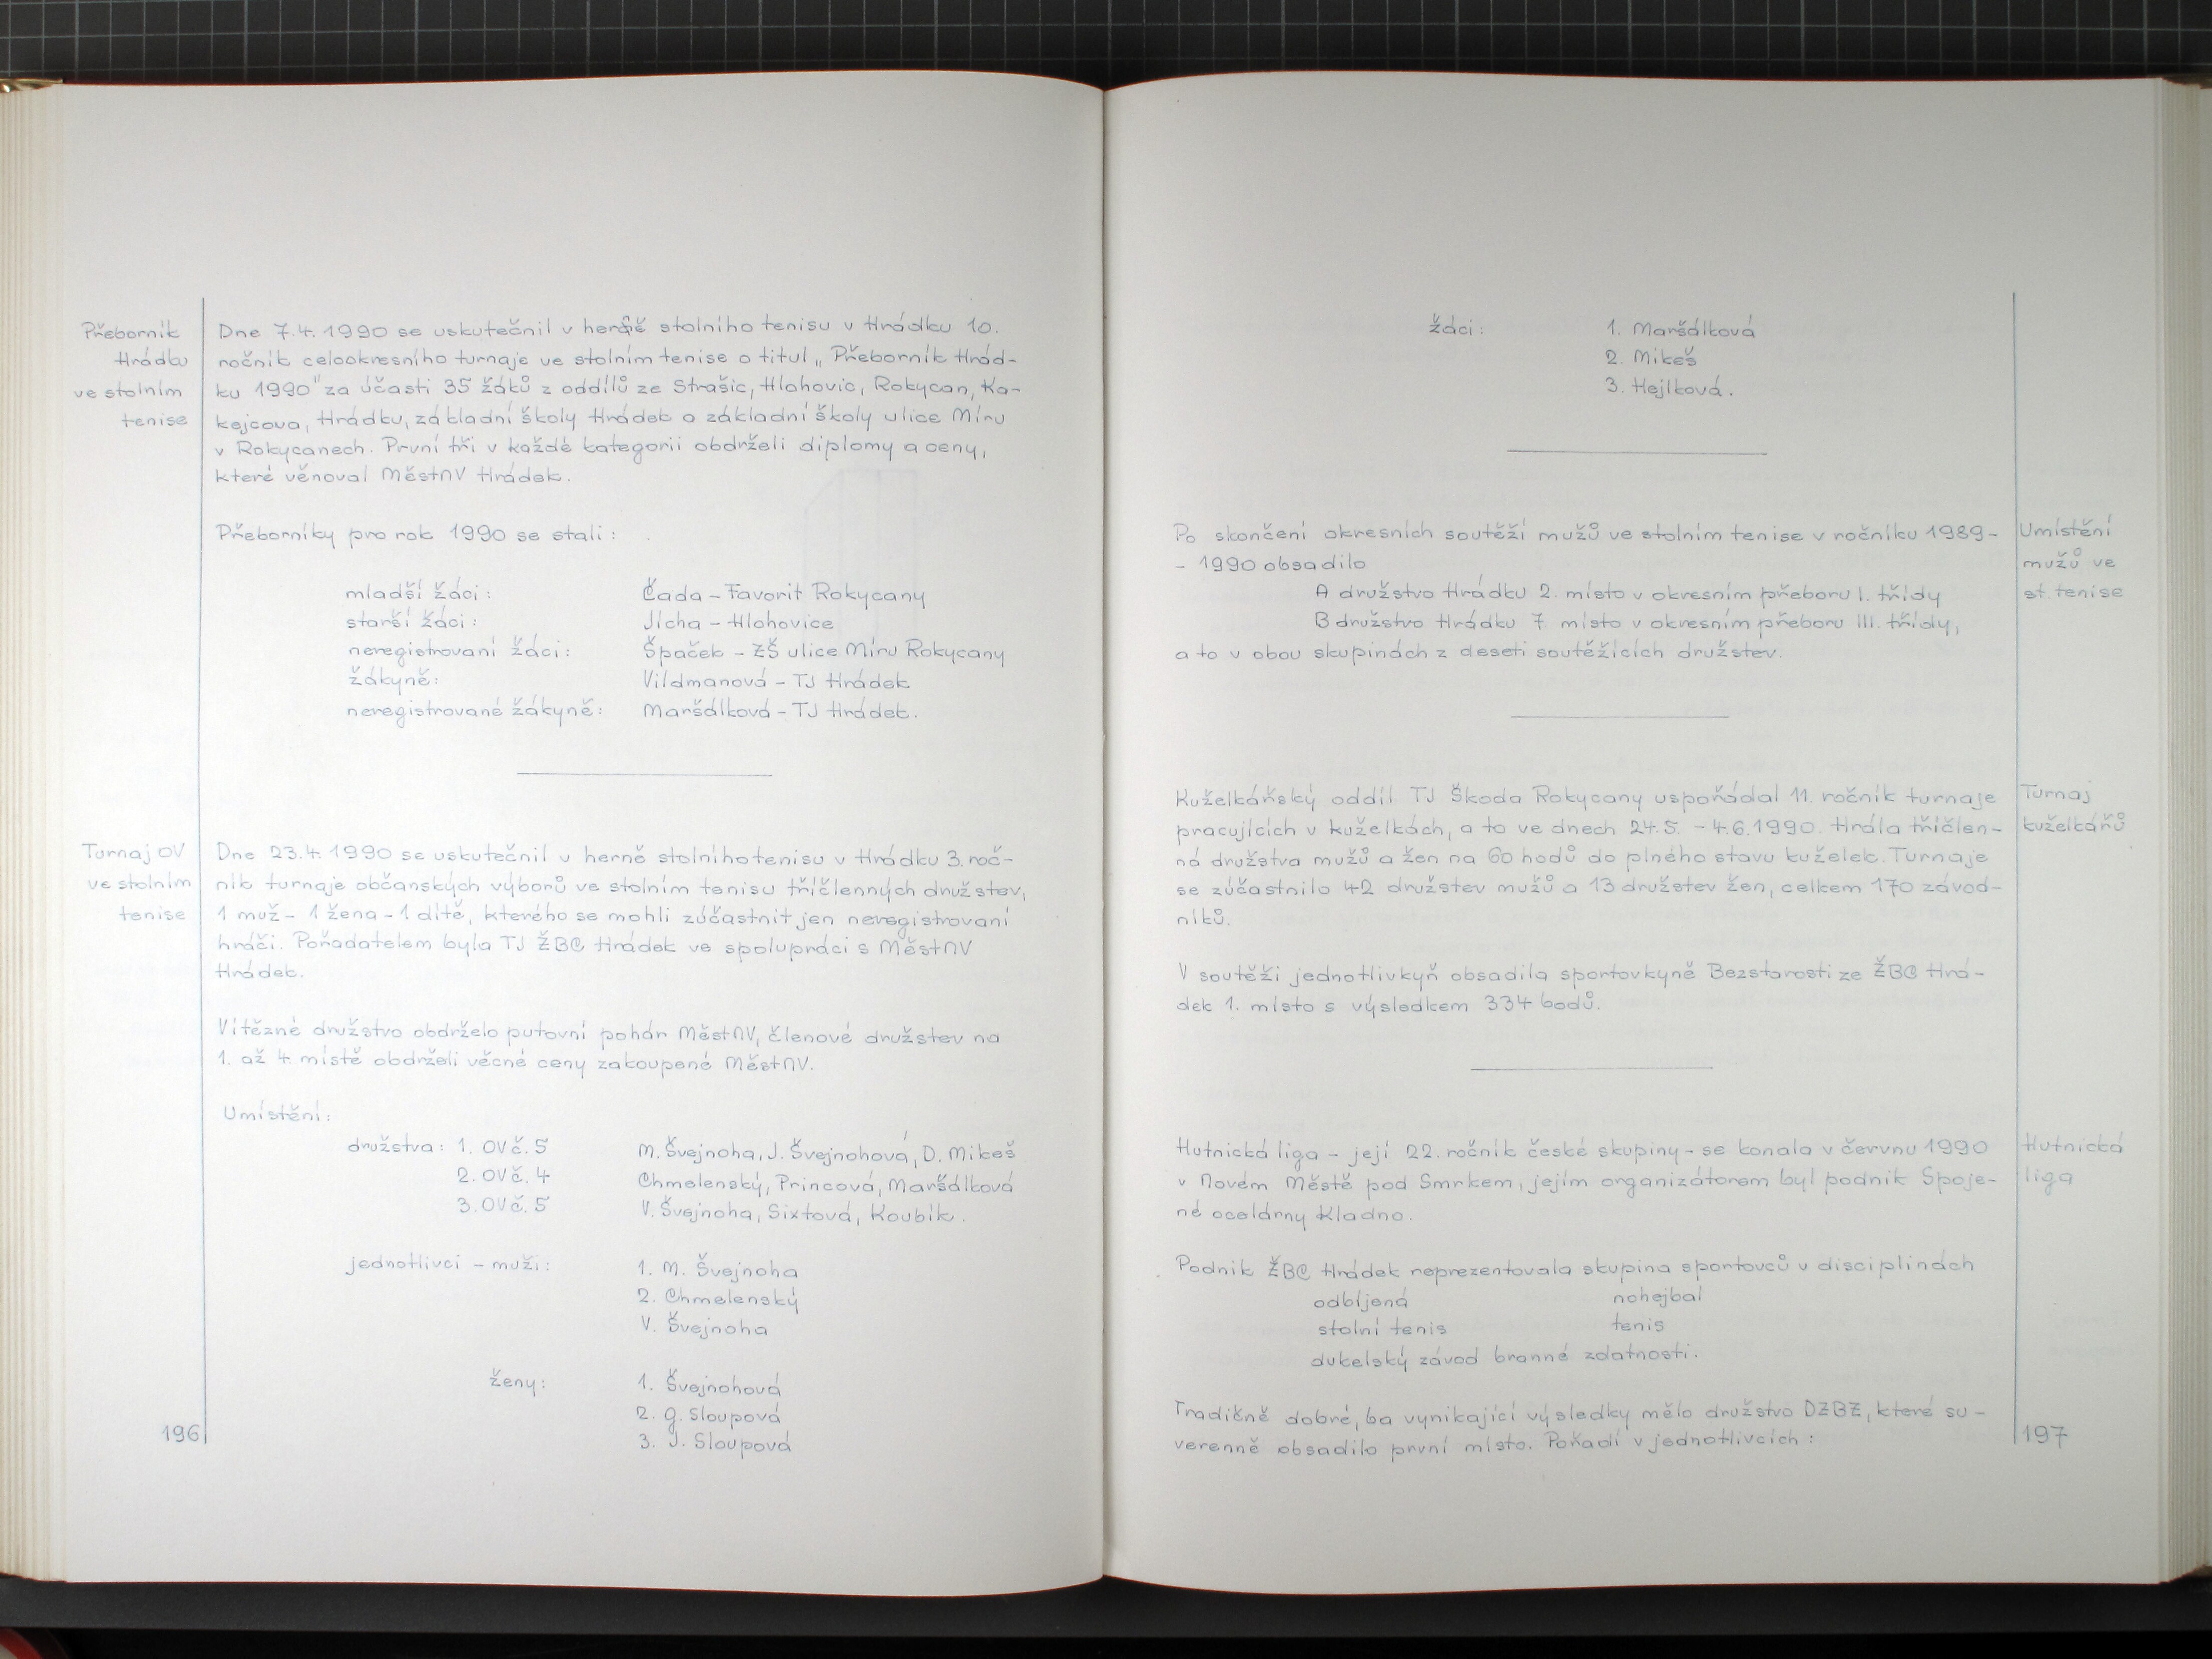 Přeborník
Hrádku
ve stolním
tenise
Dne 7.4.1990 se uskutečnil v herně stolního tenisu v Hrádku 10.
ročník celookresního turnaje ve stolním tenise o titul „Přeborník Hrád-
ku 1990" za účasti 35 žáků z oddílů ze Strašic, Hlohovic, Rokycan, Ka-
kejcova, Hrádku, základní školy Hrádek a základní školy ulice Míru
v Rokycanech. První tři v každé kategorii obdrželi diplomy a ceny,
které věnoval MěstNV Hrádek.
Přeborníky pro rok 1990 se stali:
mladší žáci: Čada - Favorit Rokycany
starší žáci: Jícha - Hlohovice
neregistrovaní žáci: Špaček - ZŠ ulice Míru Rokycany
žákyně: Vildmanová - TJ Hrádek
neregistrované žákyně: Maršálková - TJ Hrádek.
Turnaj OV
ve stolním
tenise
Dne 23.4.1990 se uskutečnil v herně stolního tenisu v Hrádku 3. roč-
ník turnaje občanských výborů ve stolním tenisu tříčlenných družstev,
1 muž - 1 žena - 1 dítě, kterého se mohli zúčastnit jen neregistrovaní
hráči. Pořadatelem byla TJ ŽBC Hrádek ve spolupráci s MěstNV
Hrádek.
Vítězné družstvo obdrželo putovní pohár MěstNV, členové družstev na
1. až 4. místě obdrželi věcné ceny zakoupené MěstNV.
Umístění:
družstva: 1. OV č. 5 M. Švejnoha, J. Švejnohová, D. Mikeš
2. OV č. 4 Chmelenský, Princová, Maršálková
3. OV č. 5 V. Švejnoha, Sixtová, Koubík.
jednotlivci - muži: 1. M. Švejnoha
2. Chmelenský
V. Švejnoha
ženy: 1. Švejnohová
2. g. Sloupová
3. J. Sloupová
196
žáci: 1. Maršálková
2. Mikeš
3. Hejlková.
Po skončení okresních soutěží mužů ve stolním tenise v ročníku 1989-
- 1990 obsadilo
A družstvo Hrádku 2. místo v okresním přeboru I. třídy
B družstvo Hrádku 7. místo v okresním přeboru III. třídy,
a to v obou skupinách z deseti soutěžících družstev.
Umístění
mužů ve
st. tenise
Kuželkářský oddíl TJ Škoda Rokycany uspořádal 11. ročník turnaje
pracujících v kuželkách, a to ve dnech 24.5. - 4.6.1990. Hrála tříčlen-
ná družstva mužů a žen na 60 hodů do plného stavu kuželek. Turnaje
se zúčastnilo 42 družstev mužů a 13 družstev žen, celkem 170 závod-
níků.
Turnaj
kuželkářů
V soutěži jednotlivkyň obsadila sportovkyně Bezstarosti ze ŽBC Hrá-
dek 1. místo s výsledkem 334 bodů.
Hutnická liga - její 22. ročník české skupiny - se konala v červnu 1990
v Novém Městě pod Smrkem, jejím organizátorem byl podnik Spoje-
né ocelárny Kladno.
Hutnická
liga
Podnik ŽBC Hrádek reprezentovala skupina sportovců v disciplinách
odbíjená nohejbal
stolní tenis tenis
dukelský závod branné zdatnosti.
Tradičně dobré, ba vynikající výsledky mělo družstvo DZBZ, které su-
verenně obsadilo první místo. Pořadí v jednotlivcích:
197